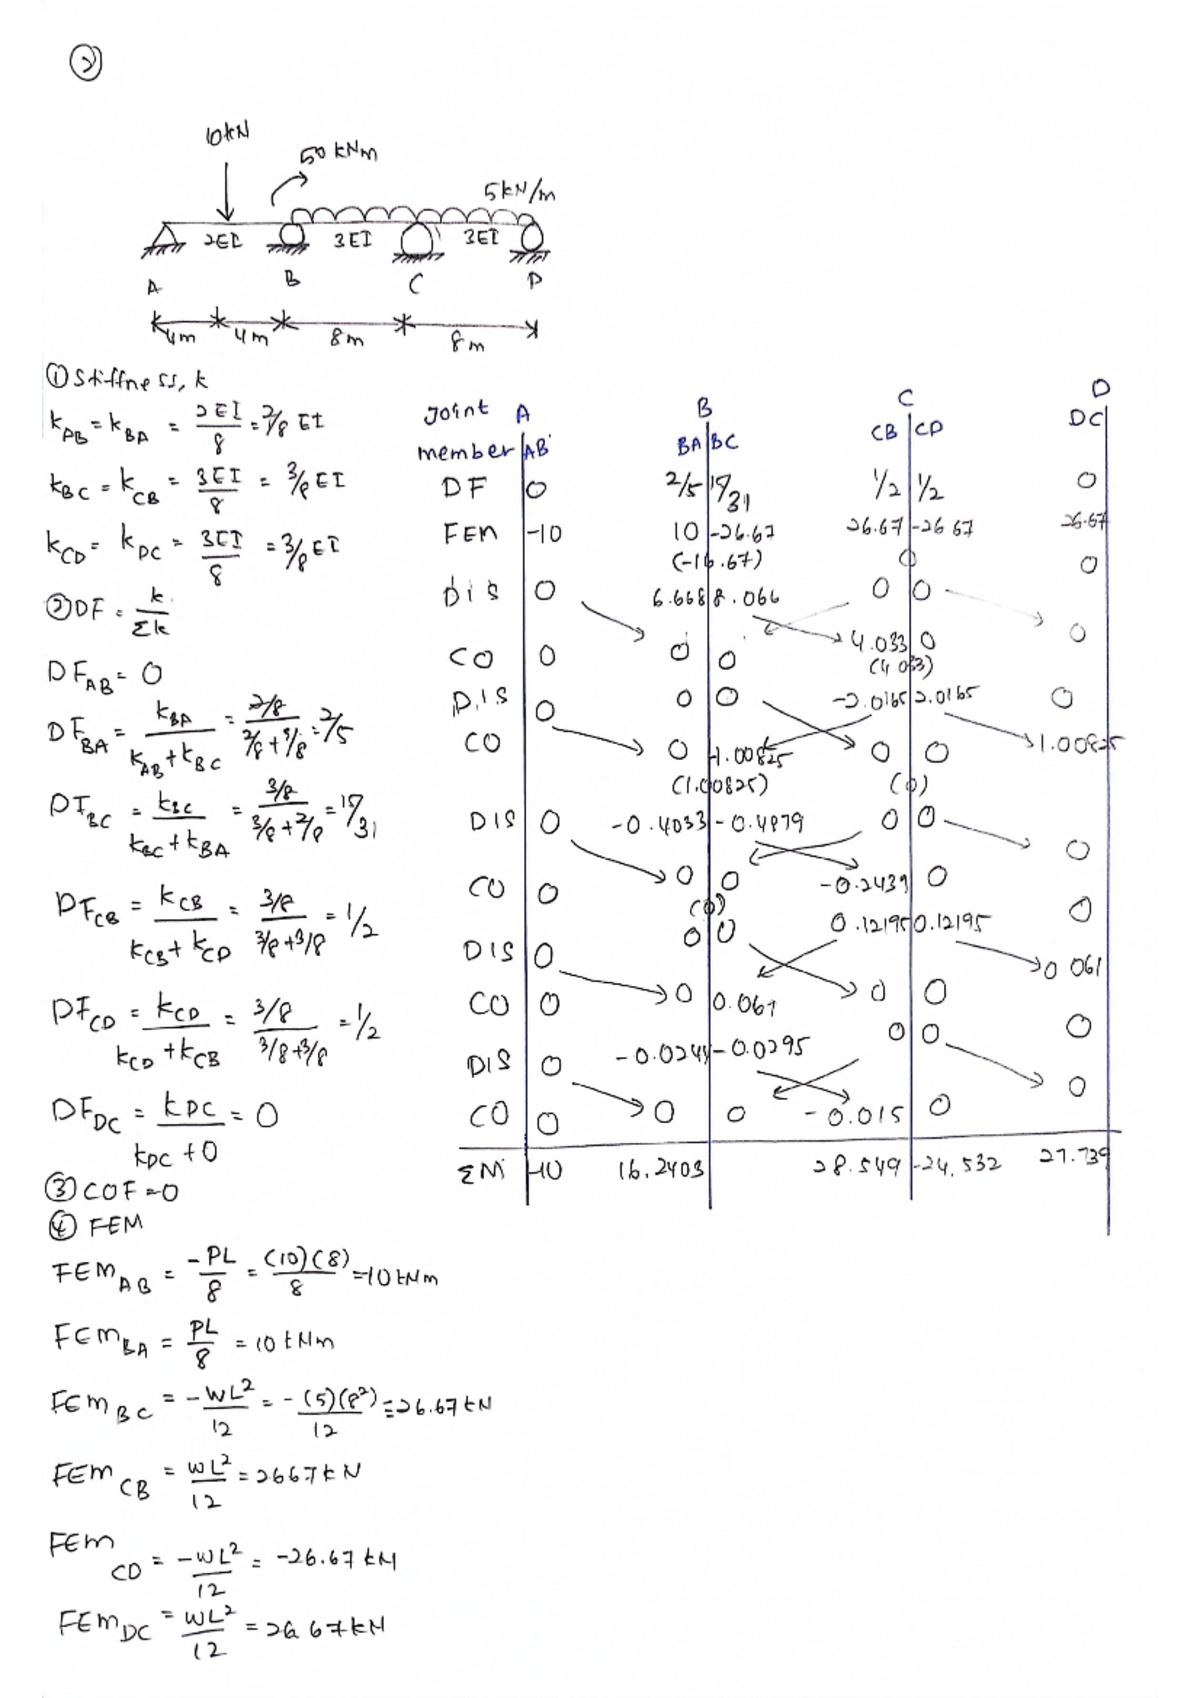 ②
10kN
50 kNm
5kN/m
2EI 3EI 3EI
A B C D
4m 4m 8m 8m
① Stiffness, k
k_AB = k_BA = 2EI/8 = 2/8 EI
k_BC = k_CB = 3EI/8 = 3/8 EI
k_CD = k_DC = 3EI/8 = 3/8 EI
② DF = k/Σk
DF_AB = 0
DF_BA = k_BA/(k_AB + k_BC) = (2/8)/(2/8 + 3/8) = 2/5
DF_BC = k_BC/(k_BC + k_BA) = (3/8)/(3/8 + 2/8) = 15/31
DF_CB = k_CB/(k_CB + k_CD) = (3/8)/(3/8 + 3/8) = 1/2
DF_CD = k_CD/(k_CD + k_CB) = (3/8)/(3/8 + 3/8) = 1/2
DF_DC = k_DC/(k_DC + 0) = 0
③ COF = 0
④ FEM
FEM_AB = -PL/8 = (10)(8)/8 = -10 kNm
FEM_BA = PL/8 = 10 kNm
FEM_BC = -WL²/12 = -(5)(8²)/12 = -26.67 kN
FEM_CB = WL²/12 = 26 67 kN
FEM_CD = -WL²/12 = -26.67 kN
FEM_DC = WL²/12 = 26 67 kN
Joint A B C D
member AB BA BC CB CD DC
DF 0 2/5 15/31 1/2 1/2 0
FEM -10 10 -26.67 26.67 -26 67 26.67
(-16.67) 0 0
Dis 0 6.668 8.066 0 0
CO 0 0 0 4.033 0 0
(4 033)
DIS 0 0 0 -2.0165 2.0165 0
CO 0 -1.00825 0 0 1.00825
(1.00825) (0)
DIS 0 -0.4033 -0.4879 0 0
CO 0 0 0 -0.2439 0 0
(0)
DIS 0 0 0 0.12195 0.12195 0
CO 0 0 0.061 0 0 0 061
DIS 0 -0.0244 -0.0295 0 0 0
CO 0 0 0 -0.015 0 0
ΣM -10 16.2403 28.549 -24.532 27.739